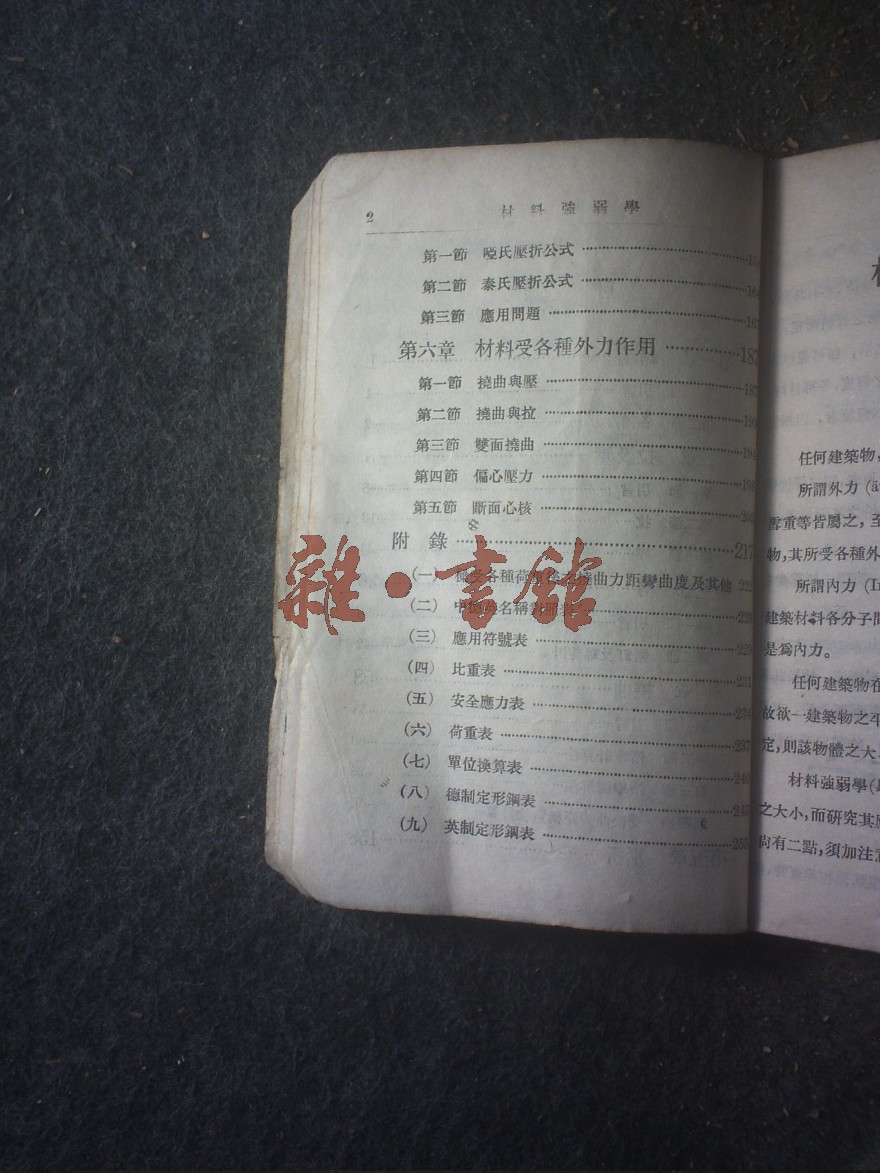 2 材料強弱學
第一節 啞氏壓折公式
第二節 泰氏壓折公式 164
第三節 應用問題 167
第六章 材料受各種外力作用 187
第一節 撓曲與壓 187
第二節 撓曲與拉 190
第三節 雙面撓曲 194
第四節 偏心壓力 198
第五節 斷面心核
附錄 217
(一) 受各種荷 曲力距彎曲度及其他 222
(二) 中 名稱
(三) 應用符號表
(四) 比重表 231
(五) 安全應力表 234
(六) 荷重表 237
(七) 單位換算表 240
(八) 德制定形鋼表
(九) 英制定形鋼表 255
雜·書館
任何建築物,
所謂外力 (ä
雪重等皆屬之, 至
物, 其所受各種外
所謂內力 (In
建築材料各分子間
是爲內力。
任何建築物在
故欲一建築物之平
定, 則該物體之大
材料強弱學 (
之大小, 而研究其應
尚有二點, 須加注意